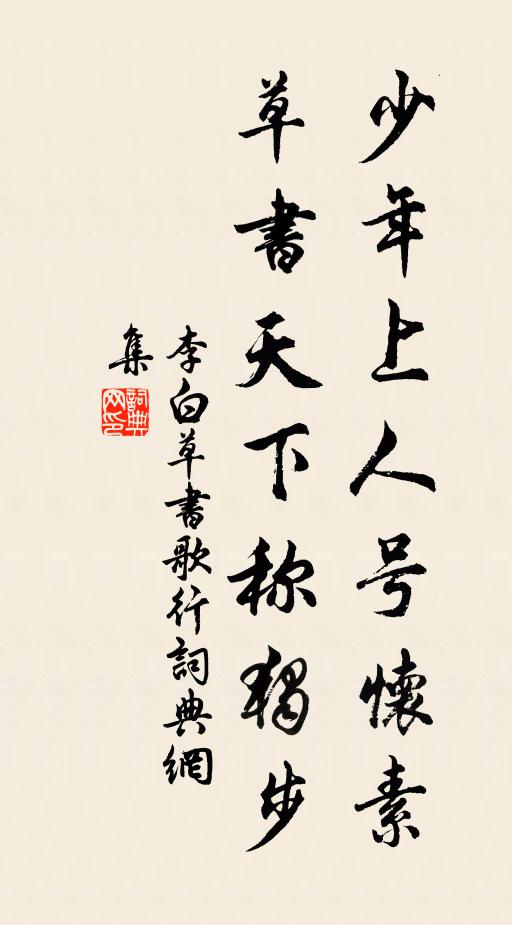 少年上人号懷素
草書天下称獨步
李白草書歌行詞典網
集
詞典网印